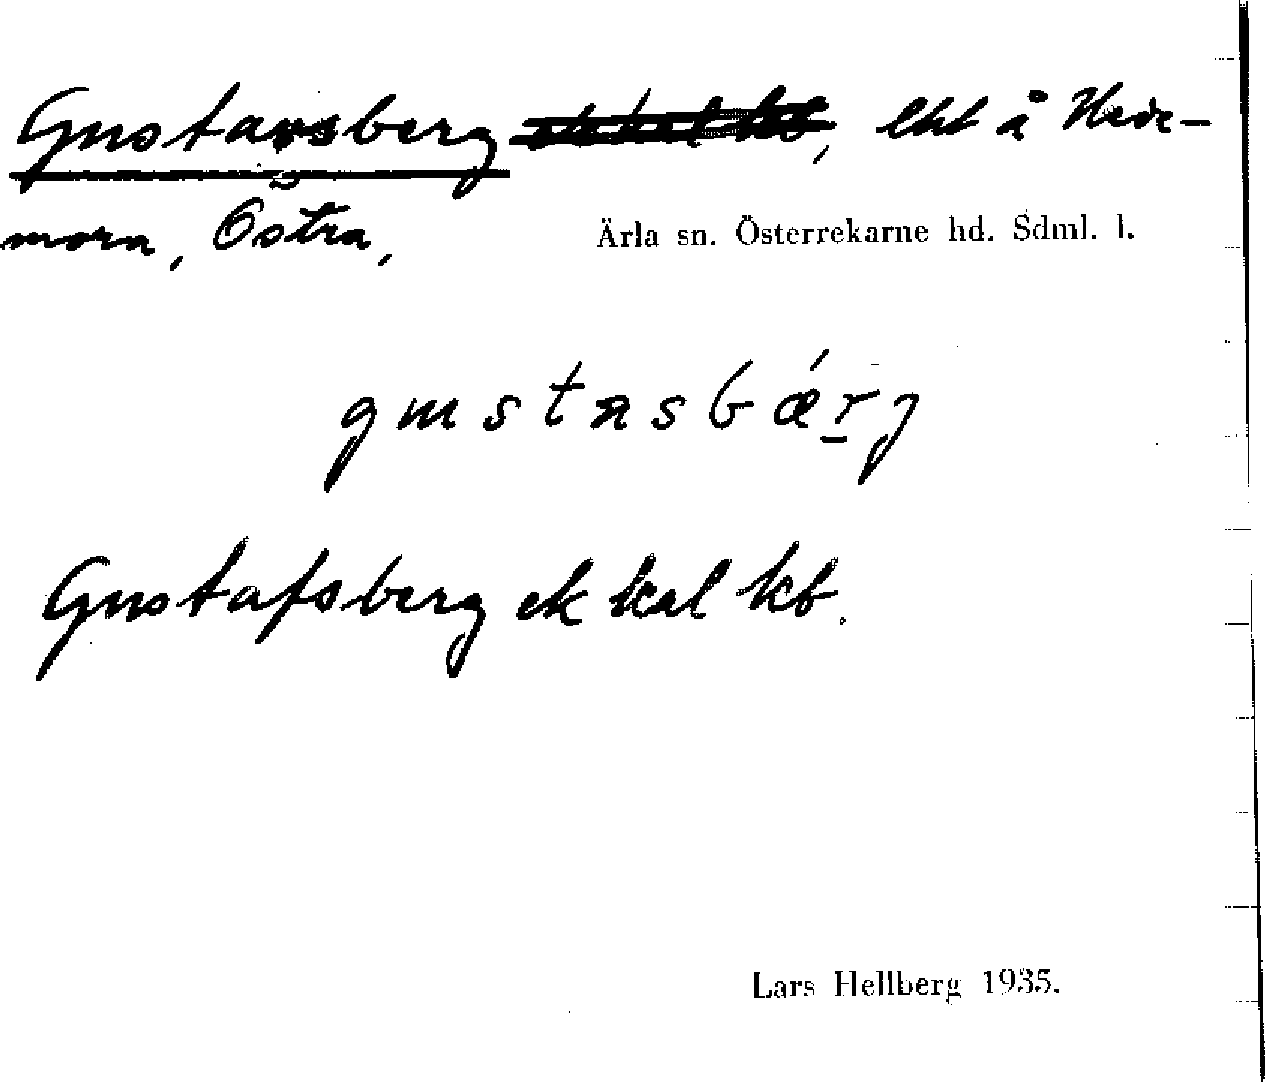 Gustavsberg, lht å Hede-
mora, Östra,
Ärla sn. Österrekarne hd. Sdml. l.
gustasbǽrj
Gustafsberg ek kal kb.
Lars Hellberg 1935.